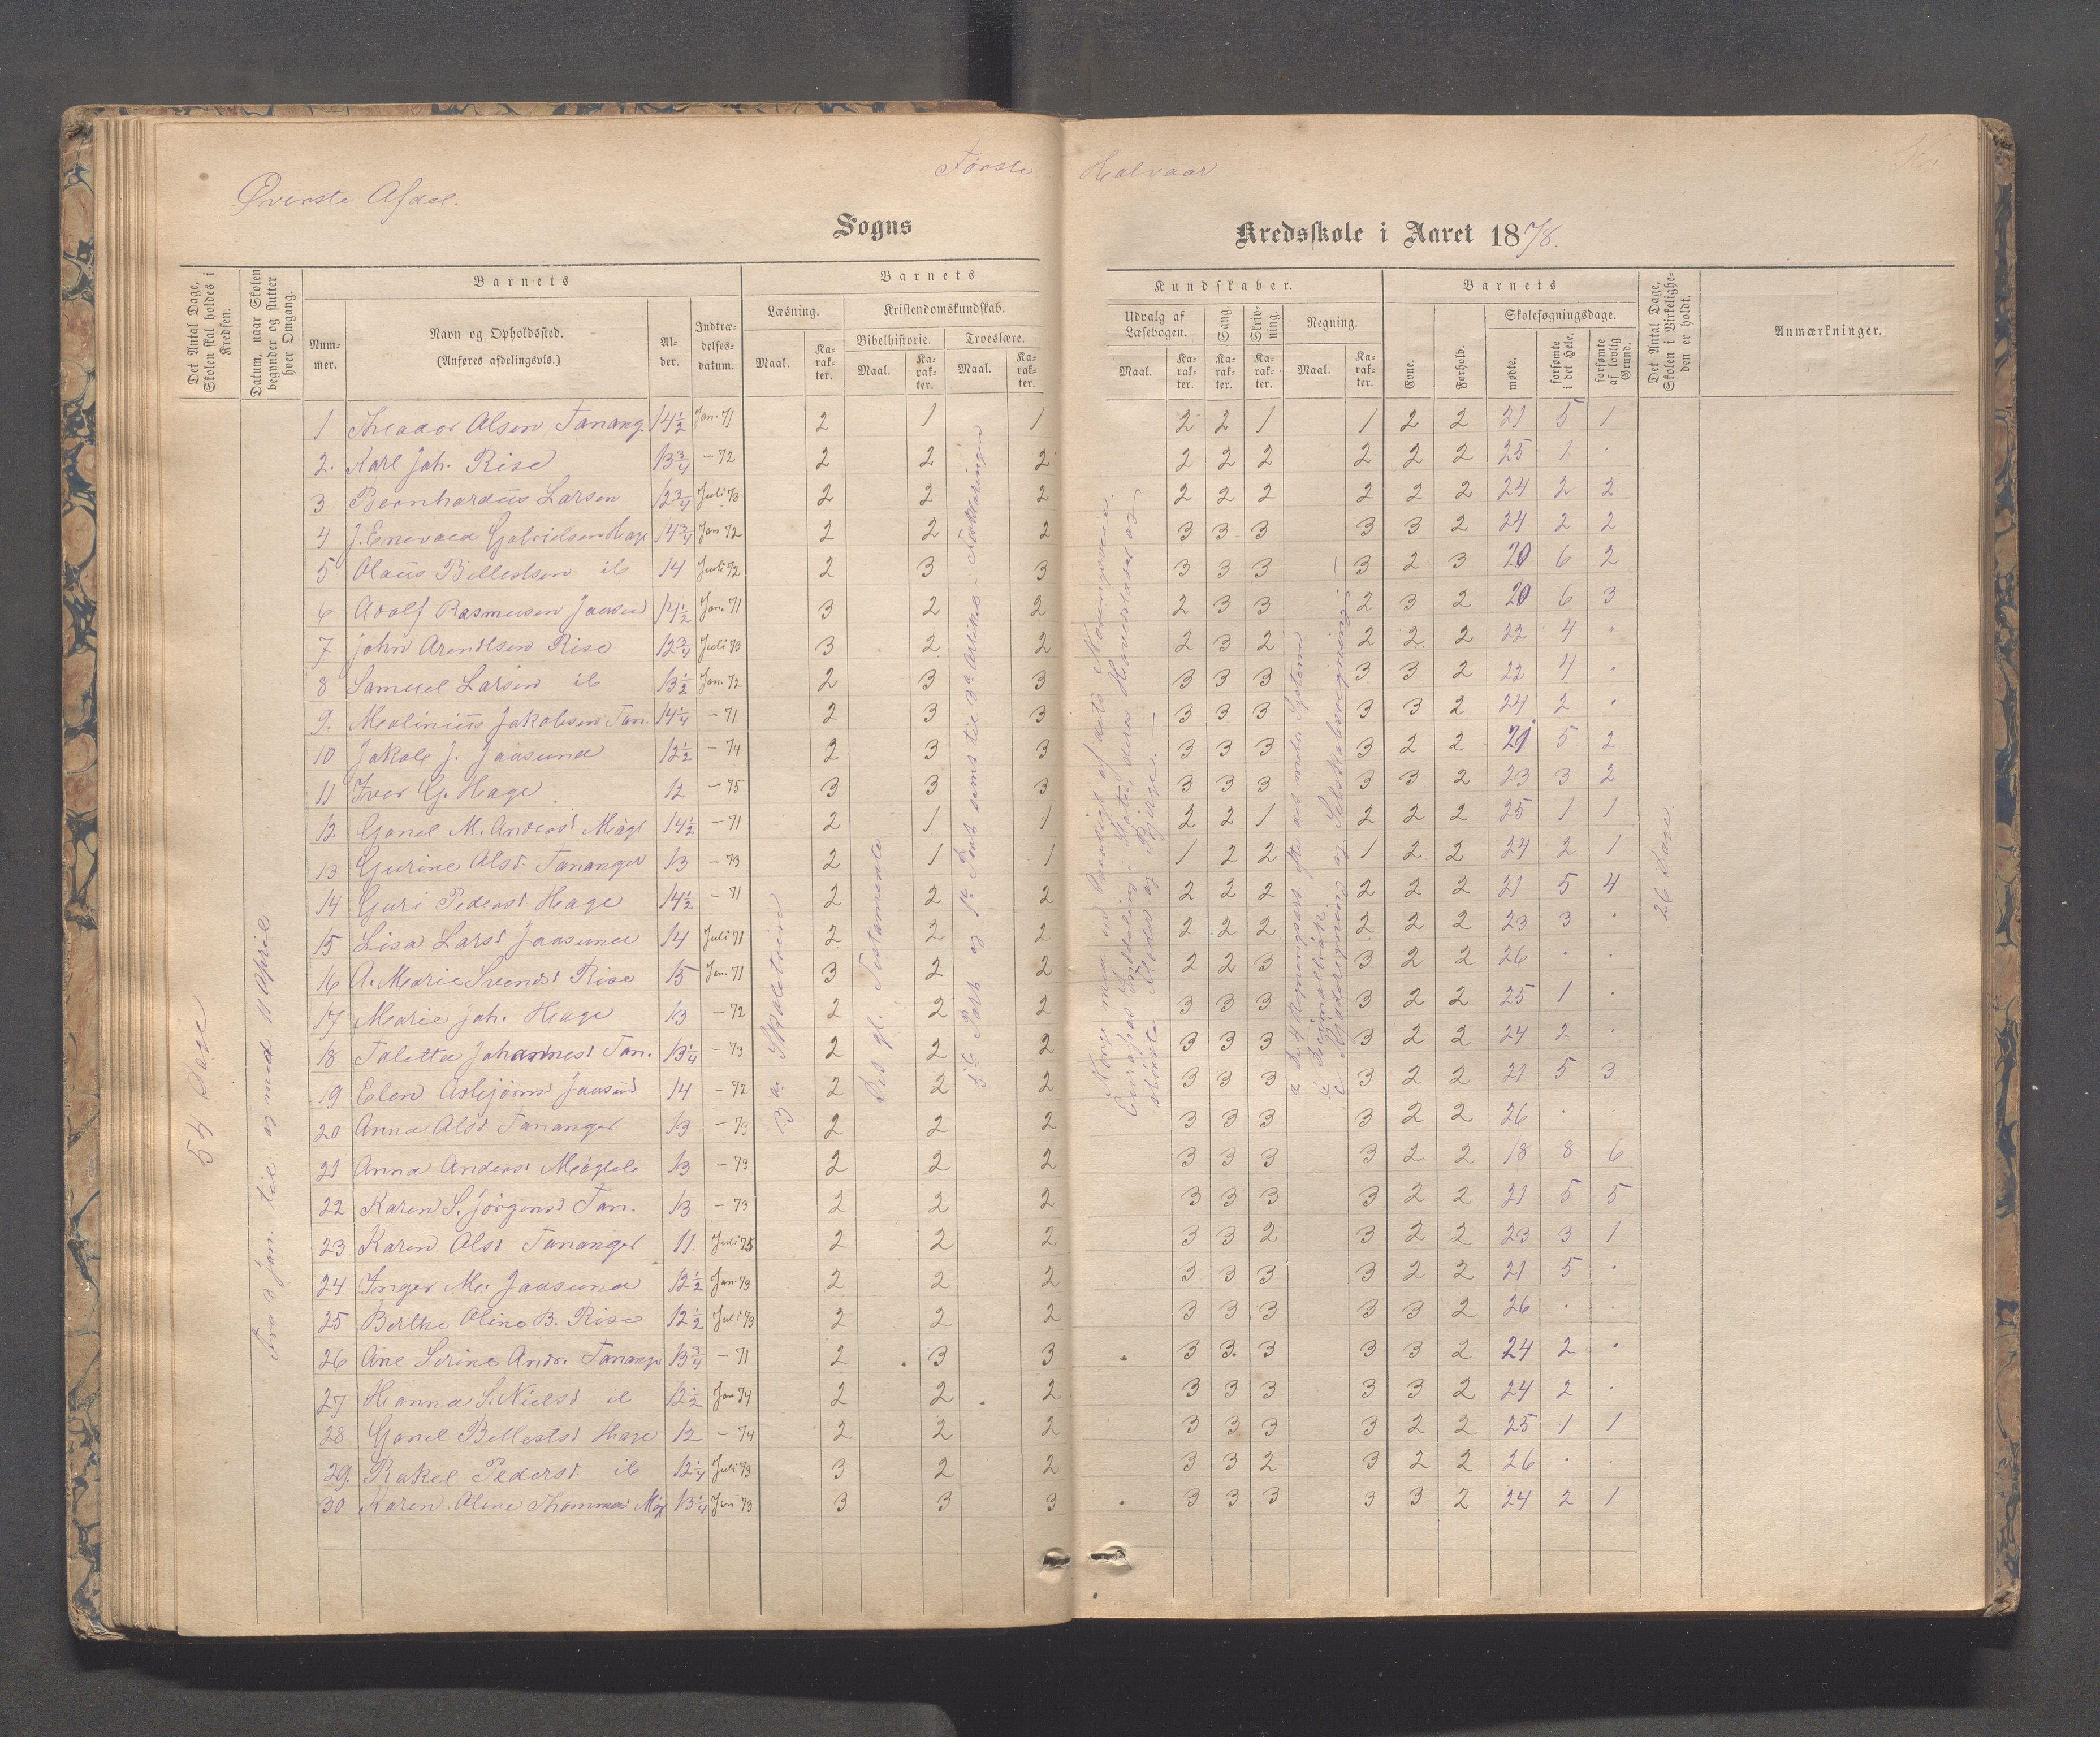 Første Halvaar
Øverste Afdel.
Sogns Kredsskole i Aaret 1878.
Det Antal Dage, Skolen skal holdes i Kredsen.
Datum, naar Skolen begynder og slutter hver Omgang.
Barnets
Nummer.
Navn og Opholdssted.
(Anføres afdelingsvis.)
Alder.
Indtrædelsesdatum.
Barnets Kundskaber.
Læsning.
Maal. Karakter.
Kristendomskundskab.
Bibelhistorie. Troeslære.
Maal. Karakter. Maal. Karakter.
Udvalg af Læsebogen.
Maal. Karakter.
Sang. Karakter.
Skrivning. Karakter.
Regning.
Maal. Karakter.
Barnets
Evne. Forhold.
Skolesøgningsdage.
mødte. forsømte i det Hele. forsømte af lovlig Grund.
Det Antal Dage, Skolen i Virkeligheden er holdt.
Anmærkninger.
54 Dage
til og med 11 April
3 a. Skoletrin
Det gl. Testamente
26 Dage
1 Theodor Olsen Tanang. 14 1/2 Jan. 71 2 1 1 2 2 1 1 2 2 21 5 1
2. Karl Joh. Rise 13 3/4 - 72 2 2 2 2 2 2 2 2 2 25 1 .
3 Bernhardus Larsen 12 3/4 Juli 73 2 2 2 2 2 2 2 2 2 24 2 2
4 J. Enevald Gabrielsen Hage 14 3/4 Jan 72 2 2 2 3 3 3 3 3 2 24 2 2
5 Olaus Bellestsen ib 14 Juli 72 2 3 3 3 3 3 3 2 3 20 6 2
6 Adolf Rasmusen Jaasund 14 1/2 Jan. 71 3 2 2 2 3 3 2 3 2 20 6 3
7 John Arentsen Rise 12 3/4 Juli 73 3 2 2 2 3 2 2 2 2 22 4 "
8 Samuel Larsen ib 13 1/2 Jan. 72 2 3 3 3 3 3 3 3 2 22 4 "
9. Malinius Jakobsen Tan. 14 1/4 - 71 2 3 3 3 3 3 3 3 2 24 2 "
10 Jakob J. Jaasund 12 1/2 - 74 2 3 3 3 3 3 3 2 2 21 5 2
11 Iver G. Hage 12 - 75 3 3 3 3 3 3 3 3 2 23 3 2
12 Gonel M. Andersd Mägl 14 1/2 - 71 2 1 1 2 2 1 2 2 2 25 1 1
13 Gurine Olsd. Tananger 13 - 73 2 1 1 1 2 2 1 2 2 24 2 1
14 Guri Pedersd Hage 14 1/2 - 71 2 2 2 2 2 2 2 2 2 21 5 4
15 Lisa Larsd Jaasund 14 Juli 71 2 2 2 2 2 2 2 2 2 23 3 .
16 A. Marie Svendsd Rise 15 Jan. 71 3 2 2 2 2 3 3 2 2 26 . .
17 Marie Joh. Hage 13 - 72 2 2 2 3 3 3 3 2 2 25 1 .
18 Taletta Johannesd Tan. 13 1/4 - 73 2 2 2 3 3 3 3 2 2 24 2 .
19 Elen Asbjørnsd Jaasund 14 - 72 2 2 2 3 3 3 3 2 2 21 5 3
20 Anna Olsd. Tananger 13 - 73 2 2 2 3 3 3 3 2 2 26 . .
21 Anna Andersd Mägele 13 - 73 2 2 2 3 3 3 3 2 2 18 8 6
22 Karen S. Jörgensd Tan. 13 - 73 2 2 2 3 3 3 3 2 2 21 5 5
23 Karen Olsd Tananger 11. Juli 75 2 2 2 3 3 2 3 2 2 23 3 1
24 Inger M. Jaasund 12 1/2 Jan. 73 2 2 2 3 3 3 3 2 2 21 5 .
25 Berthe Oline B. Rise 12 1/2 Juli 73 2 2 2 3 3 3 3 3 2 26 . .
26 Ane Serine Andr. Tananger 13 3/4 - 71 2 3 3 3 3. 3 3 3 2 24 2 .
27 Hanna S. Nielsd ib 12 1/2 Jan 74 2 2 2 3 3 3 3 3 2 24 2 .
28 Gonel Bellestsd Hage 12 - 74 2 2 2 3 3 3 3 2 2 25 1 1
29. Rakel Pedersd. ib 12 1/4 Juli 73 3 2 2 3 3 2 3 2 2 26 . .
30 Karen Oline Thommasd Mäg 13 1/4 Jan 73 3 3 3 3 3 3 3 3 2 24 2 1